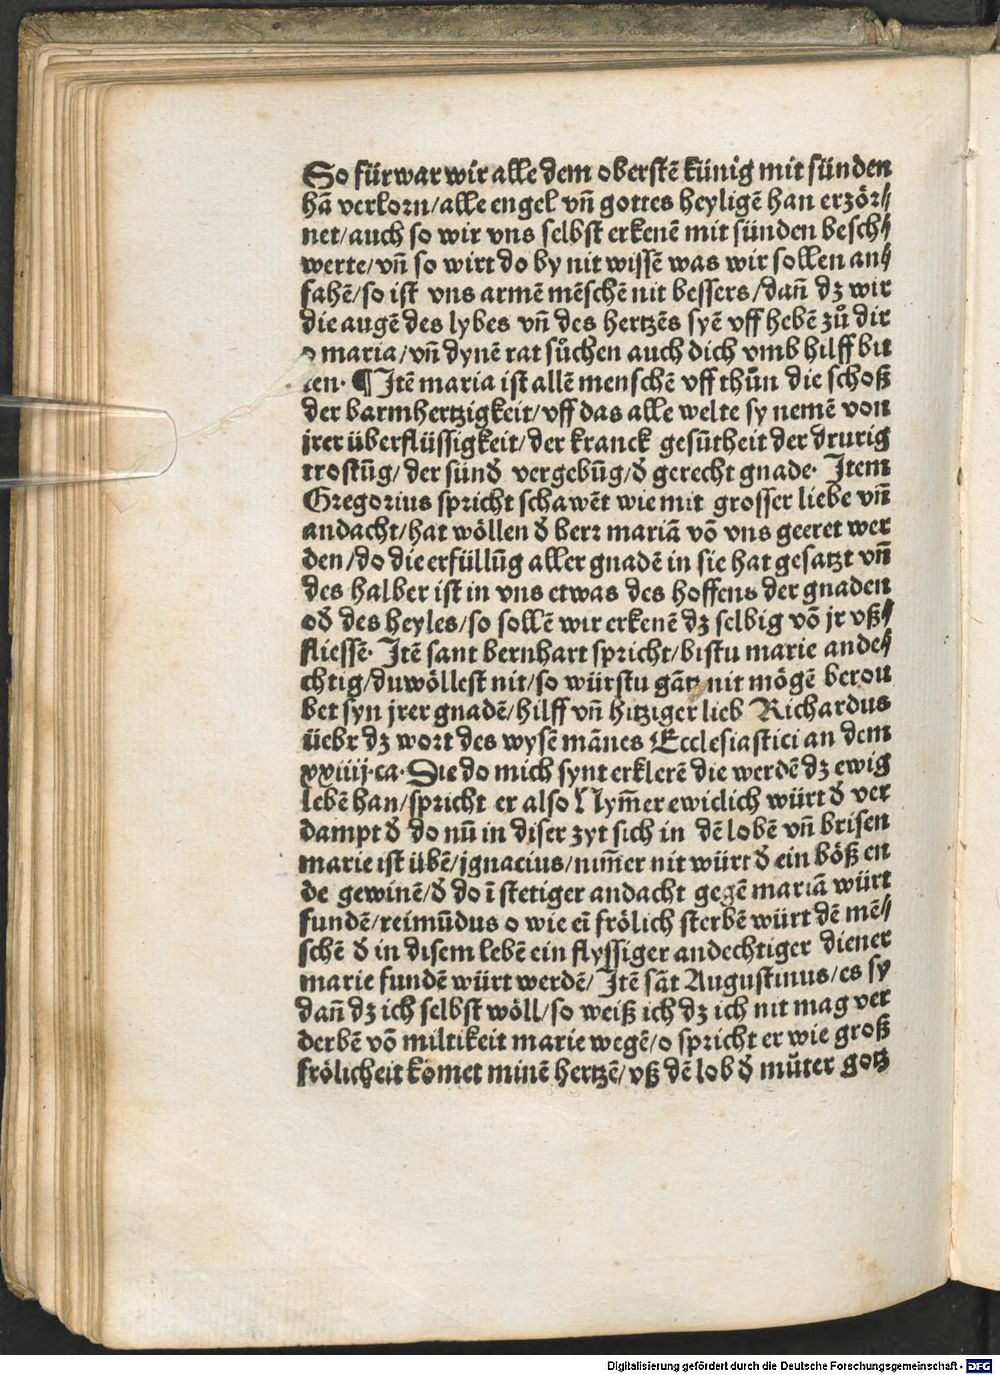 So fürwar wir alle dem oberstē künig mit sünden
hā verlorn/alle engel vn̄ gottes heyligē han erzör⸗
net/auch so wir vns selbst erkenē mit sünden besch⸗
werte/vn̄ so wirt do by nit wissē was wir sollen an⸗
fahē/so ist vns armē mēschē nit bessers/dan̄ dz wir
die augē des lybes vn̄ des hertzēs syē vff hebē zů dir
o maria/vn̄ dynē rat sůchen auch dich vmb hilff bit
ten. ¶ Itē maria ist allē menschē vff thůn die schoß
der barmhertzigkeit/vff das alle welte sy nemē von
jrer überflüssigkeit/der kranck gesūtheit der drurig
trostūg/der sünd̕ vergebūg/d̕ gerecht gnade. Item
Gregorius spricht schawēt wie mit grosser liebe vn̄
andacht/hat wöllen d̕ herꝛ mariā vō vns geeret wer
den/do die erfüllūg aller gnadē in sie hat gesatzt vn̄
des halber ist in vns etwas des hoffens der gnaden
od̕ des heyles/so sollē wir erkenē dz selbig vō jr vß⸗
fliessē. Itē sant bernhart spricht/bistu marie ande⸗
chtig/du wöllest nit/so würstu gātz nit mögē berou
bet syn jrer gnadē/hilff vn̄ hitziger lieb Richardus
üebr dz wort des wysē mānes Ecclesiastici an dem
xxiiij.ca. Die do mich synt erklerē die werdē dz ewig
lebē han/spricht er also Nym̄er ewiclich würt d̕ ver
dampt d̕ do nū in diser zyt sich in dē lobē vn̄ brisen
marie ist übē/jgnacius/nim̄er nit würt d̕ ein böß en
de gewinē/d̕ do ī stetiger andacht gegē mariā würt
fundē/reimūdus o wie eī frölich sterbē würt dē mē⸗
schē d̕ in disem lebē ein flyssiger andechtiger diener
marie fundē würt werdē/Itē sāt Augustinus/es sy
dan̄ dz ich selbst wöll/so weiß ich dz ich nit mag ver
derbē vō miltikeit marie wegē/o spricht er wie groß
frölicheit kōmet minē hertzē/vß dē lob d̕ můter gotz
Digitalisierung gefördert durch die Deutsche Forschungsgemeinschaft - DFG